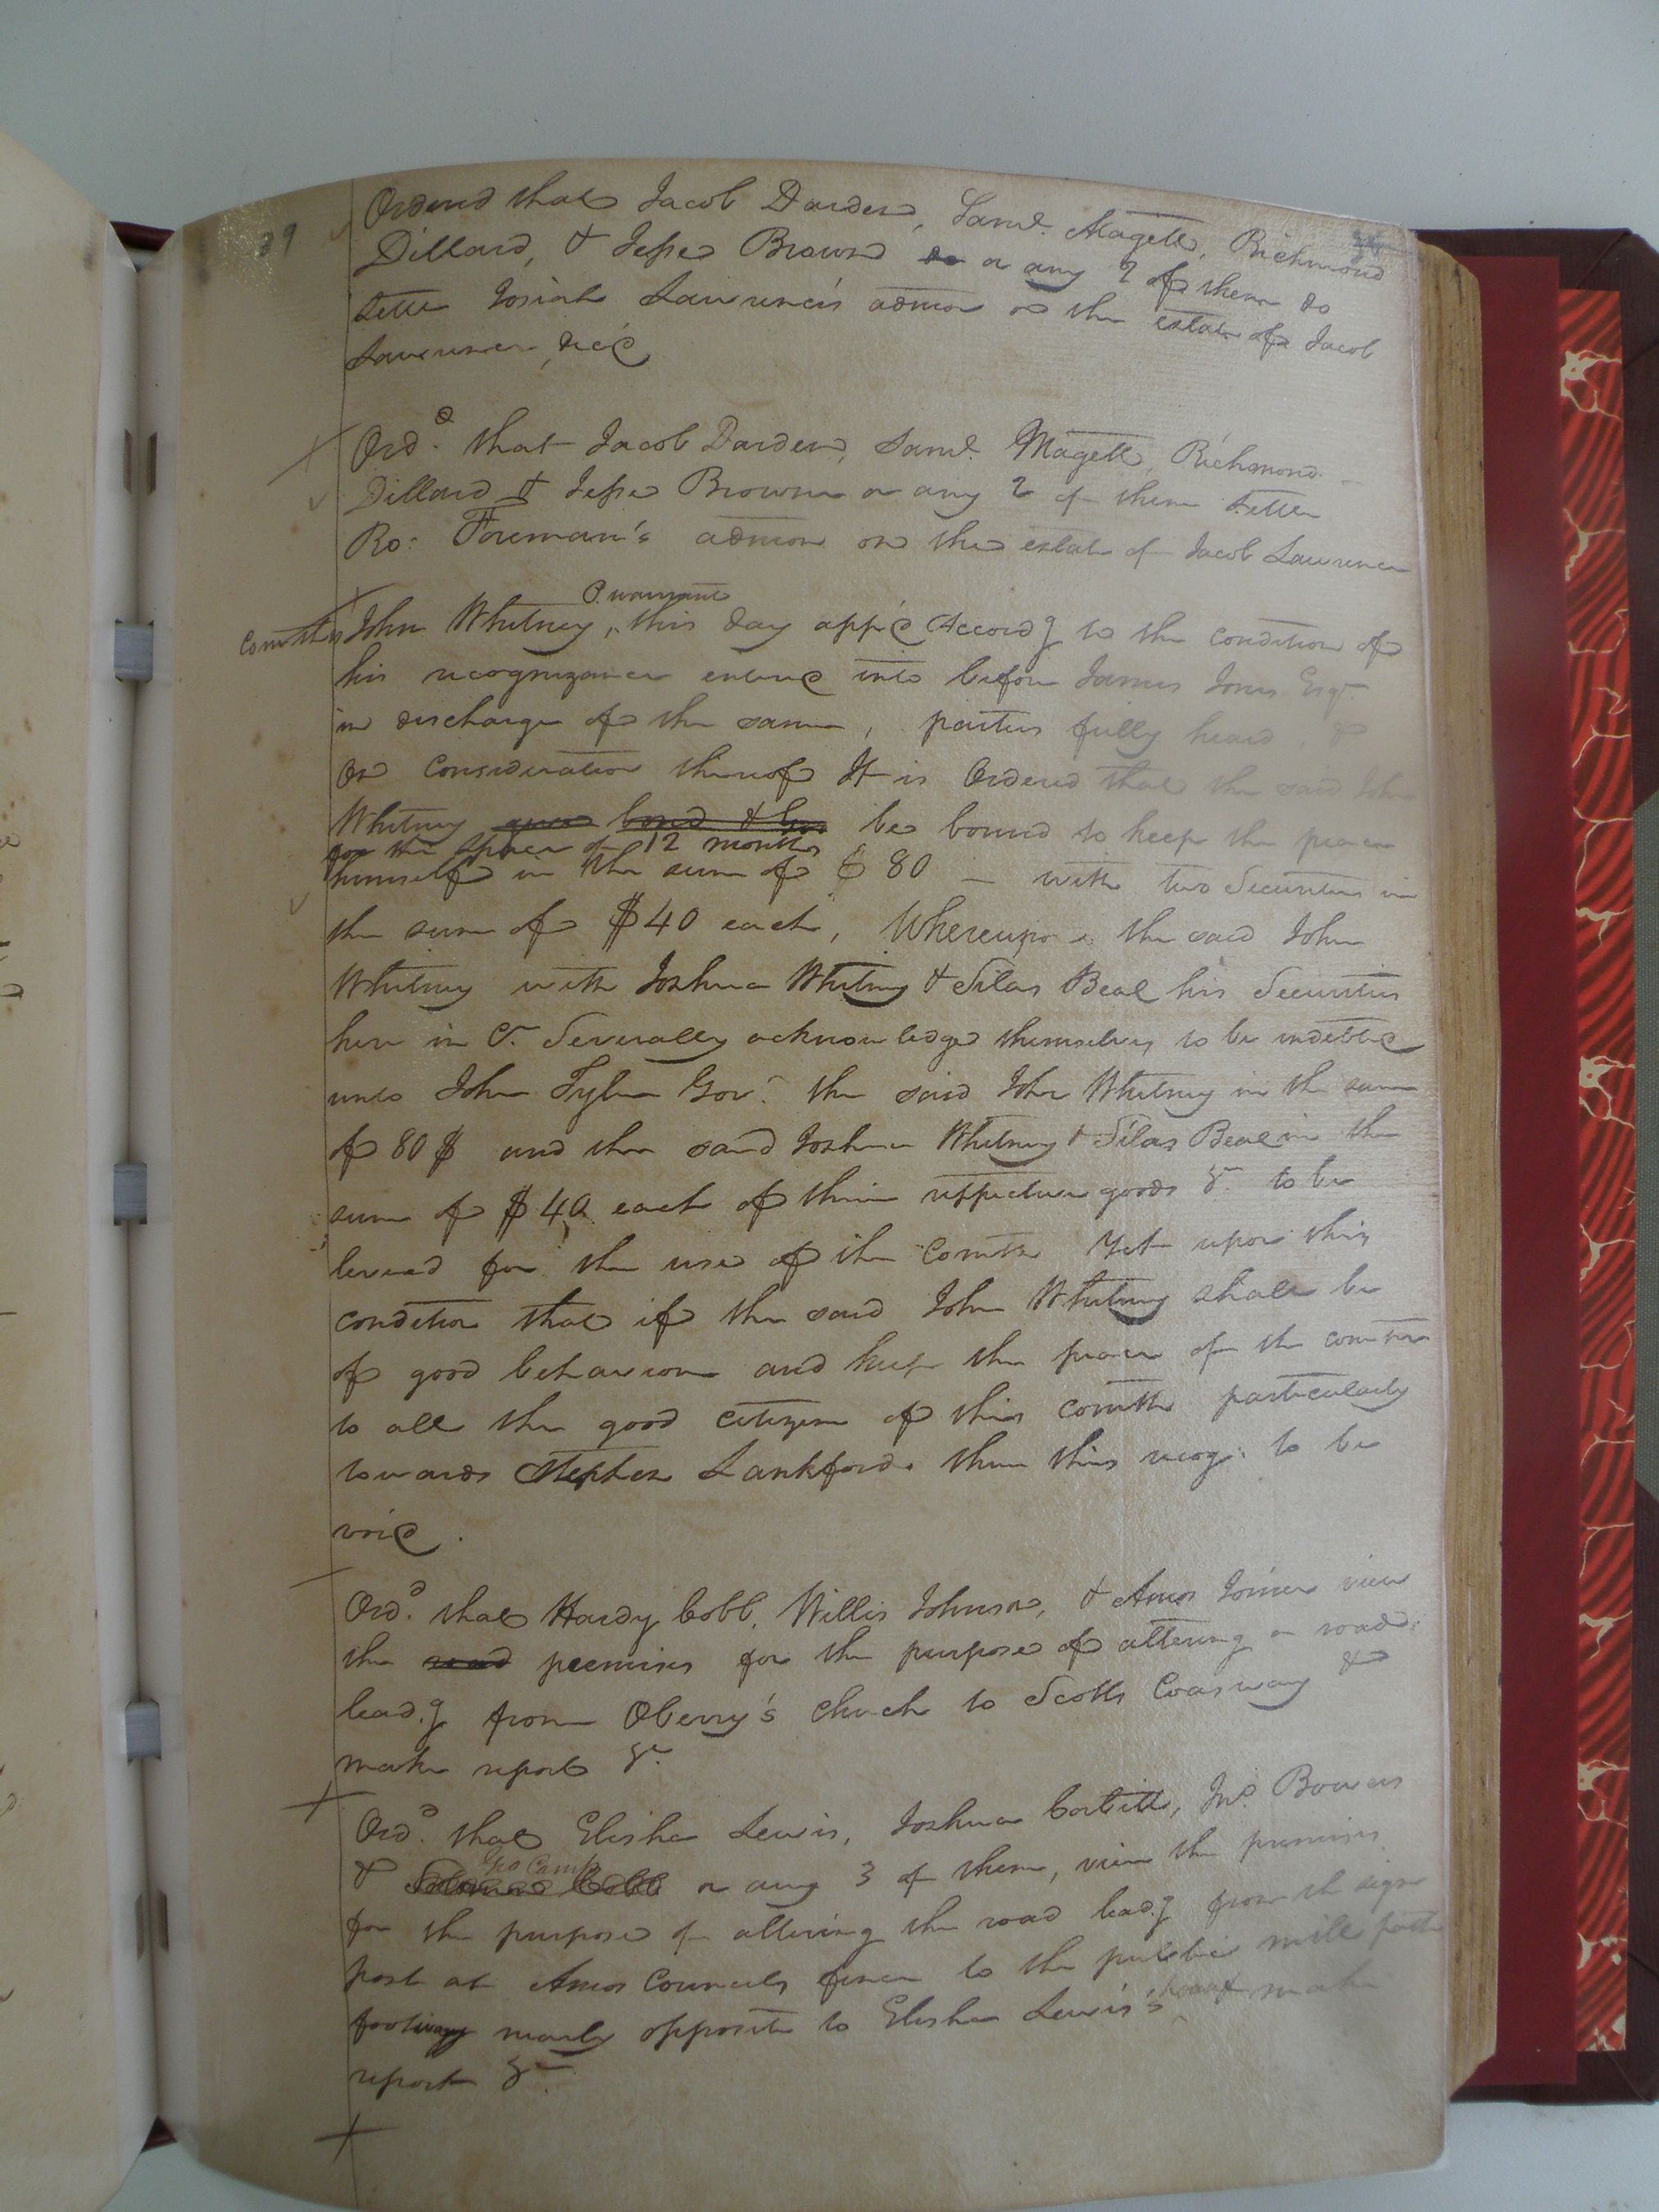 39
Ordered that Jacob Darden, Saml. Magett, Richmond
Dillard, & Jesse Brown or any 2 of them do
settle Josiah Lawrence's admon on the estate of Jacob
Lawrence, dec'd
Ord.d that Jacob Darden, Saml. Magett, Richmond
Dillard & Jesse Brown or any 2 of them settle
Ro: Foreman's admon on the estate of Jacob Lawrence
P. warrant
Comth vs John Whitney, this day app'd Accord.g to the condition of
his recognizance entered into before James Jones Esqr.
in discharge of the same, parties fully heard, &
On Consideration thereof It is Ordered that the said John
Whitney bond & be bound to keep the peace
for the space of 12 months
himself in the sum of $ 80 — with two Securities in
the sum of $40 each, Whereupon the said John
Whitney with Joshua Whitney & Silas Beal his Securities
here in Ct. Severally acknowledged themselves to be indebted
unto John Tyler Gov.r the said John Whitney in the sum
of 80 $ and the said Joshua Whitney & Silas Beal in the
sum of $ 40 each of their respective goods &c. to be
levied for the use of the Comth Yet upon this
condition that if the said John Whitney shall be
of good behaviour and keep the peace of the comth
to all the good citizens of this comth particularly
towards Stephen Lankford. then this recog: to be
void.
Ord.d that Hardy Cobb, Willis Johnson, & Amos Joiner view
the road premises for the purpose of altering a road
lead.g from Oberry's Church to Scotts Coasway &
make report &c.
Ord.d that Elisha Lewis, Joshua Corbitt, Jno. Bowers
& or any 3 of them, view the premises
for the purpose of altering the road lead.g from the sign
post at Amos Councils fence to the public mill path
footway nearly opposite to Elisha Lewis's make
report &c.